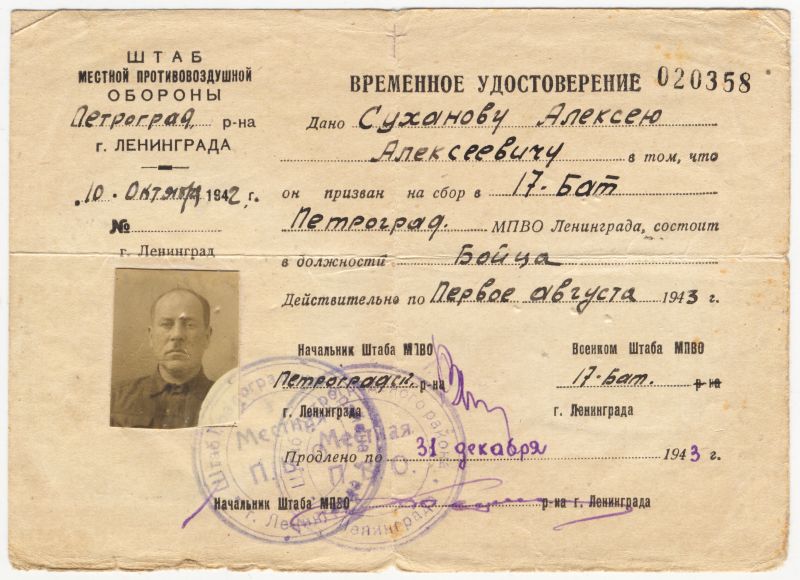 ШТАБ
МЕСТНОЙ ПРОТИВОВОЗДУШНОЙ
ОБОРОНЫ
Петроград. р-на
г. ЛЕНИНГРАДА
10. Октября 1942 г.
№
г. Ленинград
ВРЕМЕННОЕ УДОСТОВЕРЕНИЕ 020358
Дано Суханову Алексею
Алексеевичу в том, что
он призван на сбор в 17-Бат
Петроград. МПВО Ленинграда, состоит
в должности Бойца
Действительно по Первое августа 1943 г.
Начальник Штаба МПВО
Петроградск. р-на
г. Ленинграда
Военком Штаба МПВО
17-Бат. р-на
г. Ленинграда
Продлено по 31 декабря 1943 г.
Начальник Штаба МПВО р-на г. Ленинграда
Местная
П.
г. Ленинград
Местная
П. О.
Ленинград